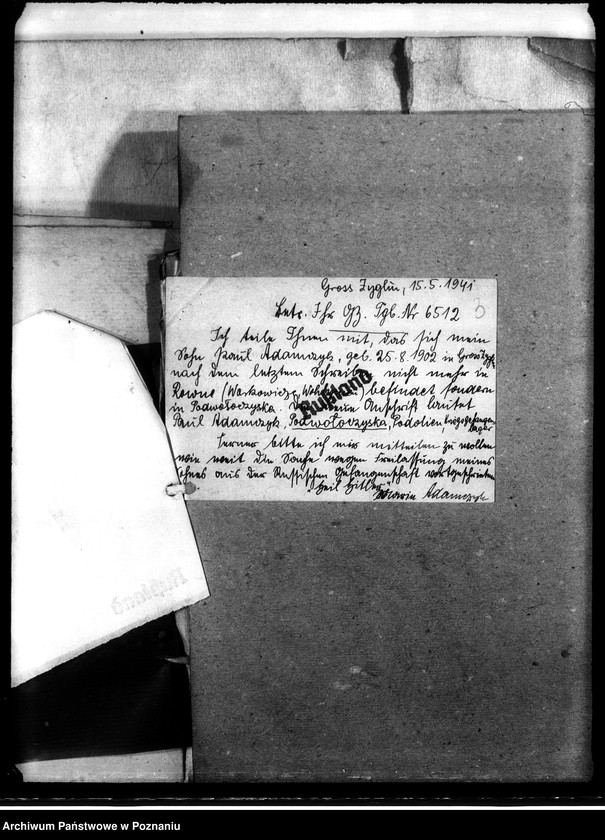 Gross Zyglin, 15.5.1941
Betr. Ihr GZ. Tgb. Nr 6512
3
Ich teile Ihnen mit, das sich mein
Sohn Paul Adamczyk, geb. 25.8.1902 in Gross Zygl.
nach dem letztem Schreiben nicht mehr in
Rowno (Warkowicze, ) befindet sondern
in Podwołoczyska. neue Anschrift lautet
Rußland
Paul Adamczyk, Podwołoczyska, Podolien, kriegsgefangen
lager
Ferner bitte ich mir mitteilen zu wollen
wie weit die Sache wegen Freilassung meines
Sohnes aus der Russischen Gefangenschaft vortgeschrieten
"Heil Hitler"
Maria Adamczyk
Rußland
Archiwum Państwowe w Poznaniu